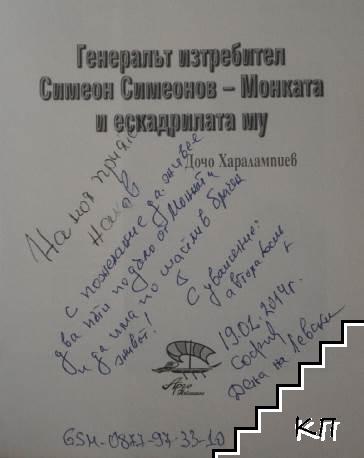 Генералът изтребител
Симеон Симеонов – Монката
и ескадрилата му
Дочо Харалампиев
На моя приятел
с пожелание да живее
два пъти по дълго от Монката
и да има по щастлив брачен
живот!
С уважение:
автора
19.02.2014г.
София
Деня на Левски
Арго
GSM-0877-97-33-10
КП